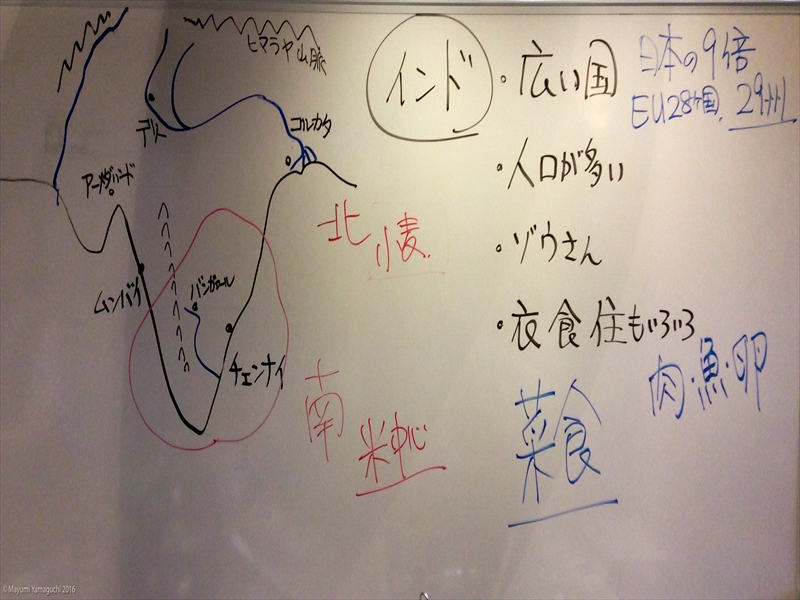 ヒマラヤ山脈
デリー
コルカタ
アーメダバード
ムンバイ
バンガロール
チェンナイ
北 小麦
南 米中心
インド
・広い国
日本の9倍
EU28ヶ国、29州
・人口が多い
・ゾウさん
・衣食住もいろいろ
菜食
肉・魚・卵
©Mayumi Yamaguchi 2016